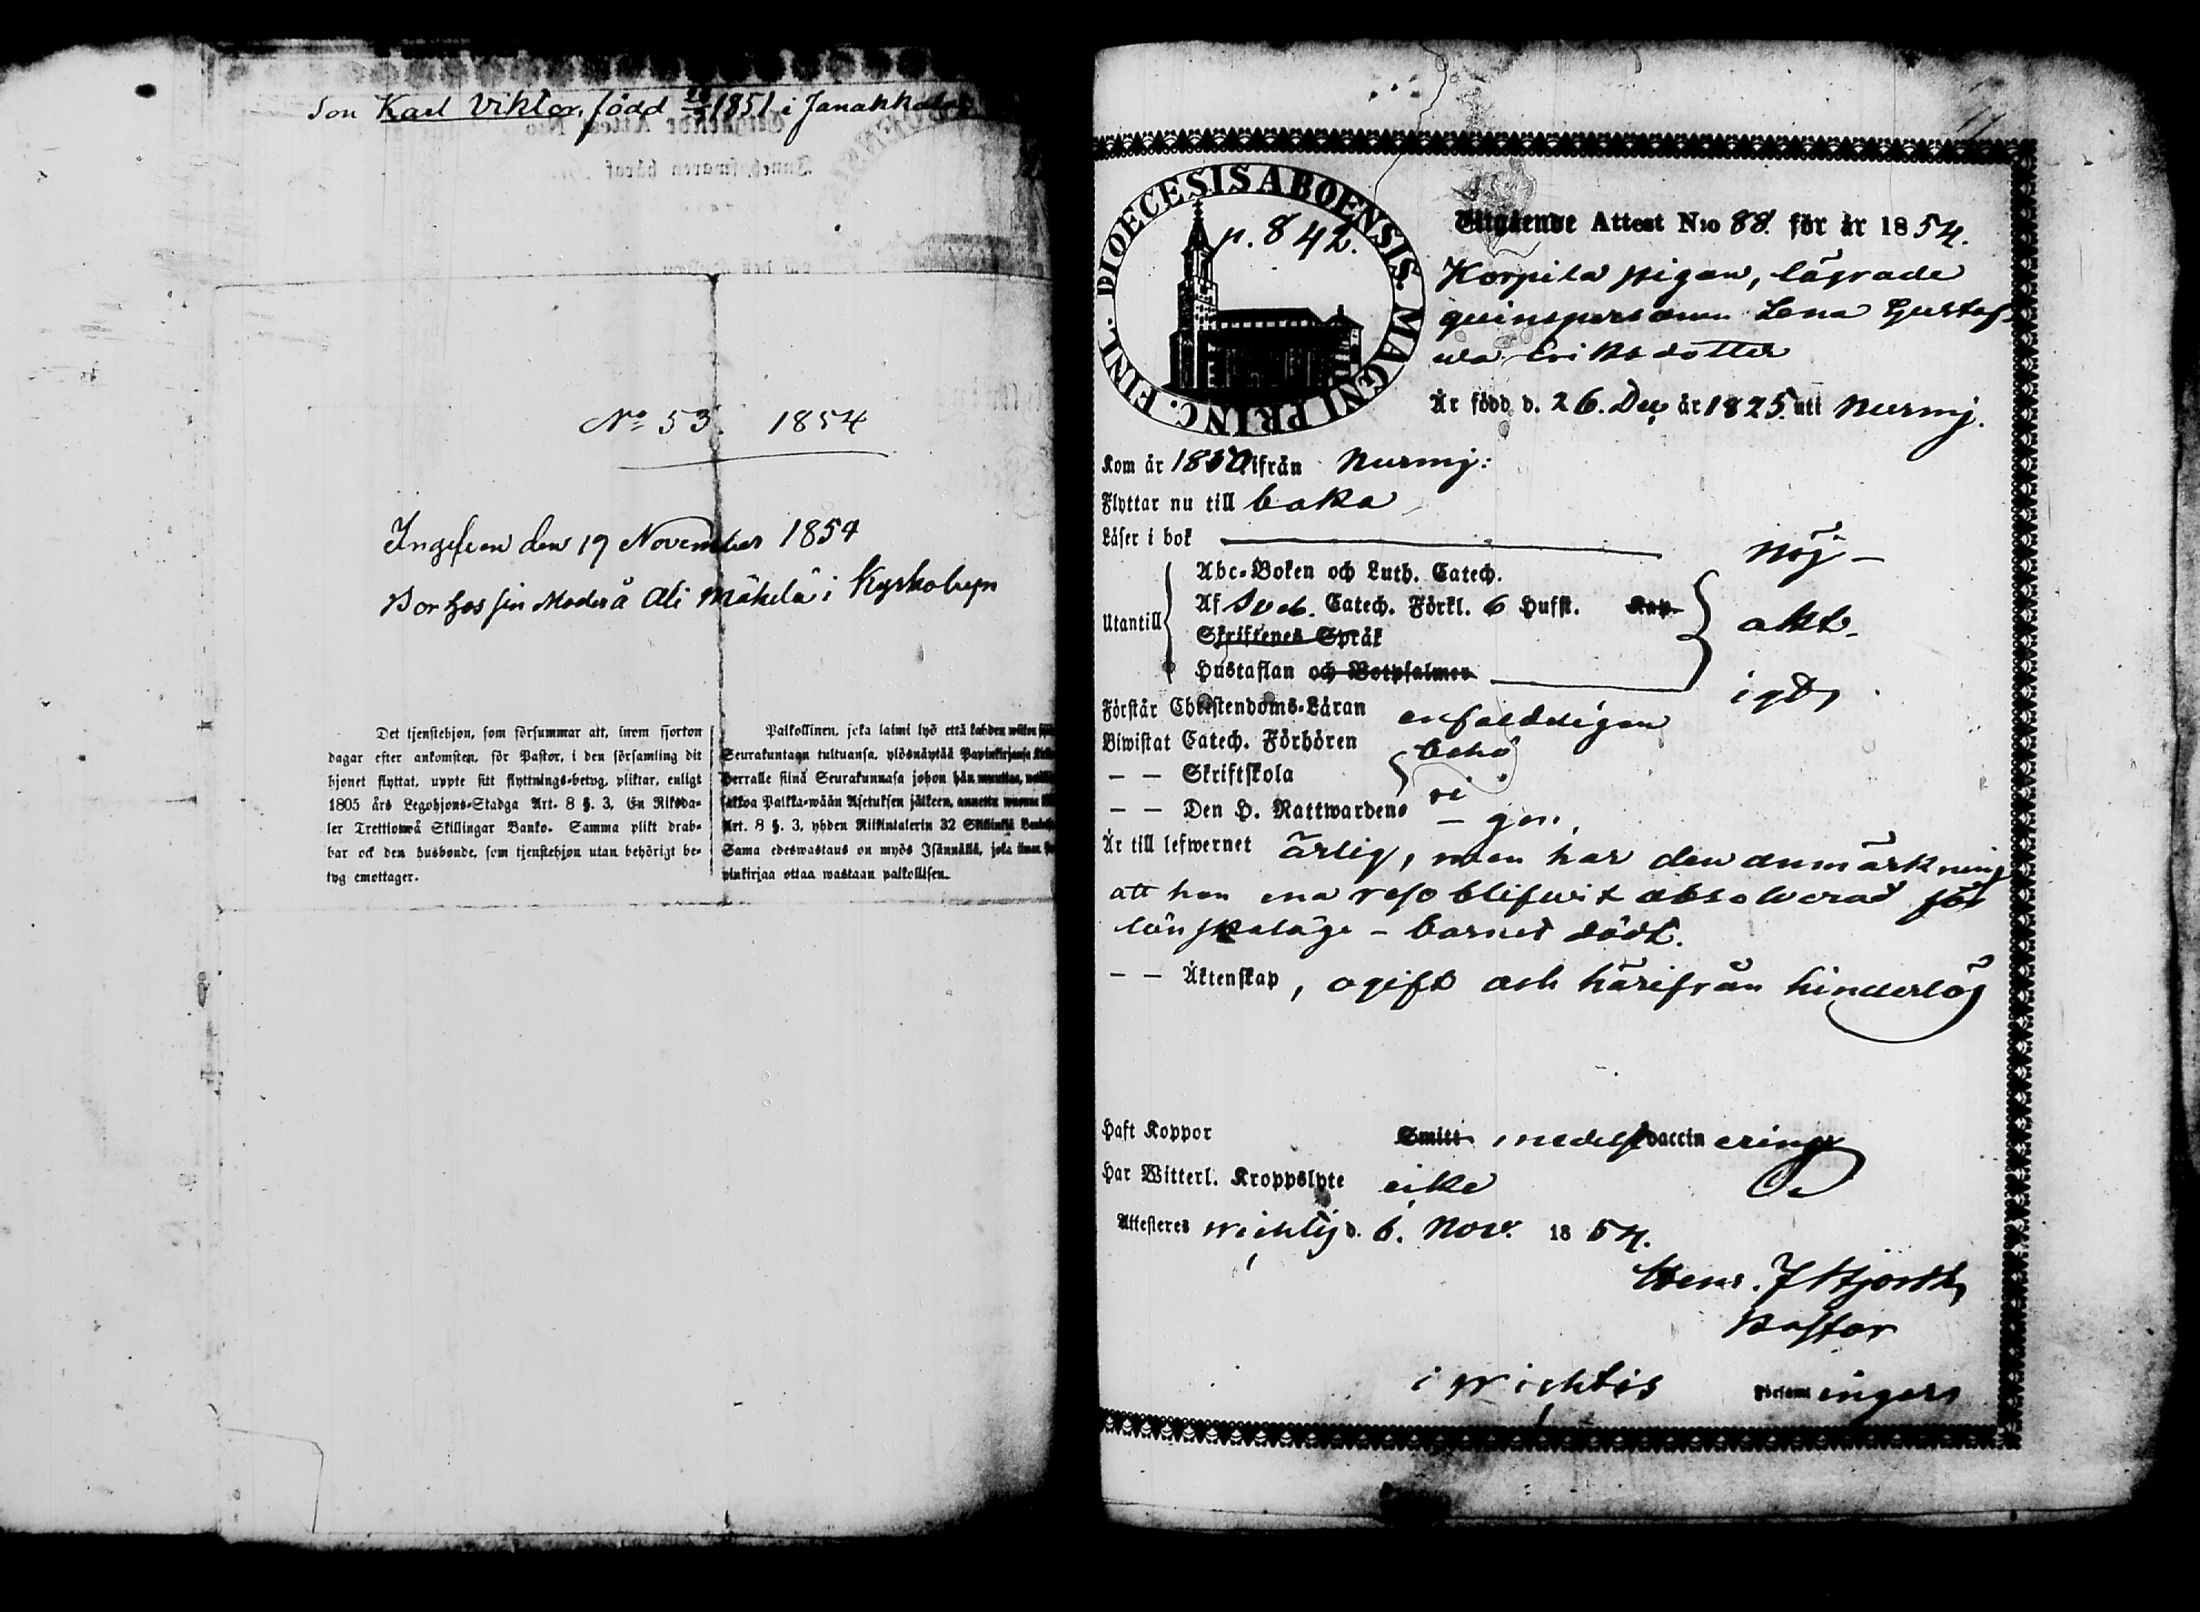 Son Karl Viktor, född 1851 i Janakkala
No 53. 1854
Ingifven den 19 November 1854
Bor hos sin Moder å Ali Mäkelä i Kyrkobyn
Det tjenstehjon, som försummar att, inom fjorton
dagar efter ankomsten, för Pastor, i den församling dit
hjonet flyttat, uppte sitt flyttnings-betyg, pliktar, enligt
1805 års Legohjons-Stadga Art. 8 §. 3, En Riksda-
ler Trettiotwå Skillingar Banko. Samma plikt drab-
bar ock den husbonde, som tjenstehjon utan behörigt be-
tyg emottager.
Palkollinen, joka laimi lyö että kahden wiikon
Seurakuntaan tultuansa, ylösnäytää Papinkirjansa
Herralle siinä Seurakunnasa johon hän muuttaa,
sakkoa Palkka-wään Asetuksen jälkeen, annettu wuonna
Art. 8 §. 3, yhden Riikintalerin 32 Skillinkiä
Sama edeswastaus on myös Isännällä, joka ilman
pinkirjaa ottaa wastaan palkollisen.
DIOECESIS ABOENSIS. MAGNI PRINC. FINL.
p. 842.
Utgående Attest N:o 88. för år 1854.
Korpila pigan, lägrade
qvinspersonen Lena Gustaf-
wa Eriksdotter
Är född d. 26. Dec. år 1825. uti Nurmj.
Kom år 1850 ifrån Nurmj:
Flyttar nu till baka
Läser i bok nöj-
Utantill
Abc-Boken och Luth. Catech.
Af Sveb. Catech. Förkl. 6 Hufst. Kap. akt-
Skriftenes Språk
Hustaflan och Botpsalmer igt
Förstår Christendoms-Läran enfaldeligen
Biwistat Catech. Förhören behö
— — Skriftskola ri
— — Den H. Nattwarden - gen.
Är till lefwernet ärlig, men har den anmärkning
att hon ena resa blifwit absolverad för
lönskaläge - barnet dödt.
— — Äktenskap, ogift och härifrån hinderlös
Haft Koppor Smitt medelst vaccinering
Har Witterl. Kroppslyte icke
Attesteres wichtis d. 6. Nov. 1854.
Henr. J Hjorth,
Pastor
i Wichtis Församlingers